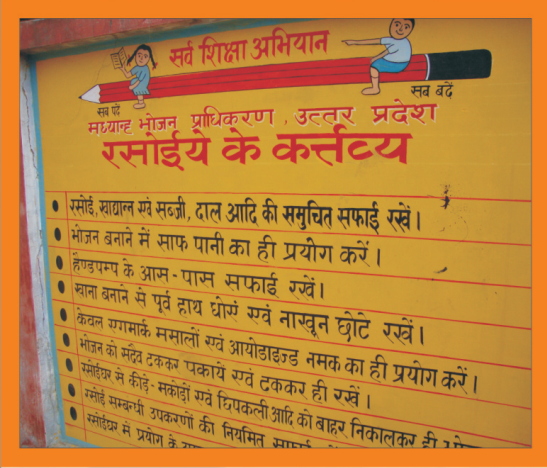 सर्व शिक्षा अभियान
सब पढें
सब बढें
मध्यान्ह भोजन प्राधिकरण, उत्तर प्रदेश
रसोईये के कर्त्तव्य
रसोई, खाद्यान्न एवं सब्जी, दाल आदि की समुचित सफाई रखें।
भोजन बनाने में साफ पानी का ही प्रयोग करें।
हैण्डपम्प के आस-पास सफाई रखें।
खाना बनाने से पूर्व हाथ धोएं एवं नाखून छोटे रखें।
केवल एगमार्क मसालों एवं आयोडाइज्ड नमक का ही प्रयोग करें।
भोजन को सदैव ढककर पकाये एवं ढककर ही रखें।
रसोईघर से कीड़े-मकोड़ों एवं छिपकली आदि को बाहर निकालकर ही
रसोई सम्बन्धी उपकरणों की नियमित सफाई
रसोईघर में प्रयोग के